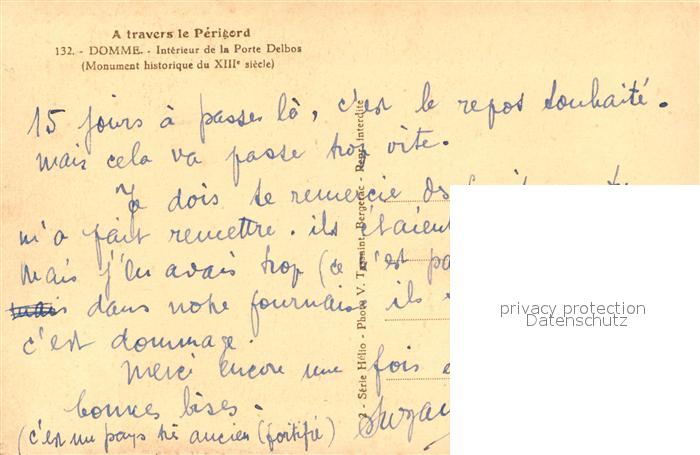 A travers le Périgord
132. - DOMME. - Intérieur de la Porte Delbos
(Monument historique du XIIIe siècle)
15 jours à passer là, c'est le repos souhaité.
mais cela va passe trop vite.
Je dois te remercie des
m'a fait remettre. ils étaient
mais j'en avais trop (ce n'est pas
mais dans notre fournais ils
c'est dommage.
Merci encore une fois
bonnes bises.
(c'est un pays très ancien (fortifié)
Série Hélio - Photo V. Tassaint, Bergerac - Repr. Interdite
privacy protection
Datenschutz